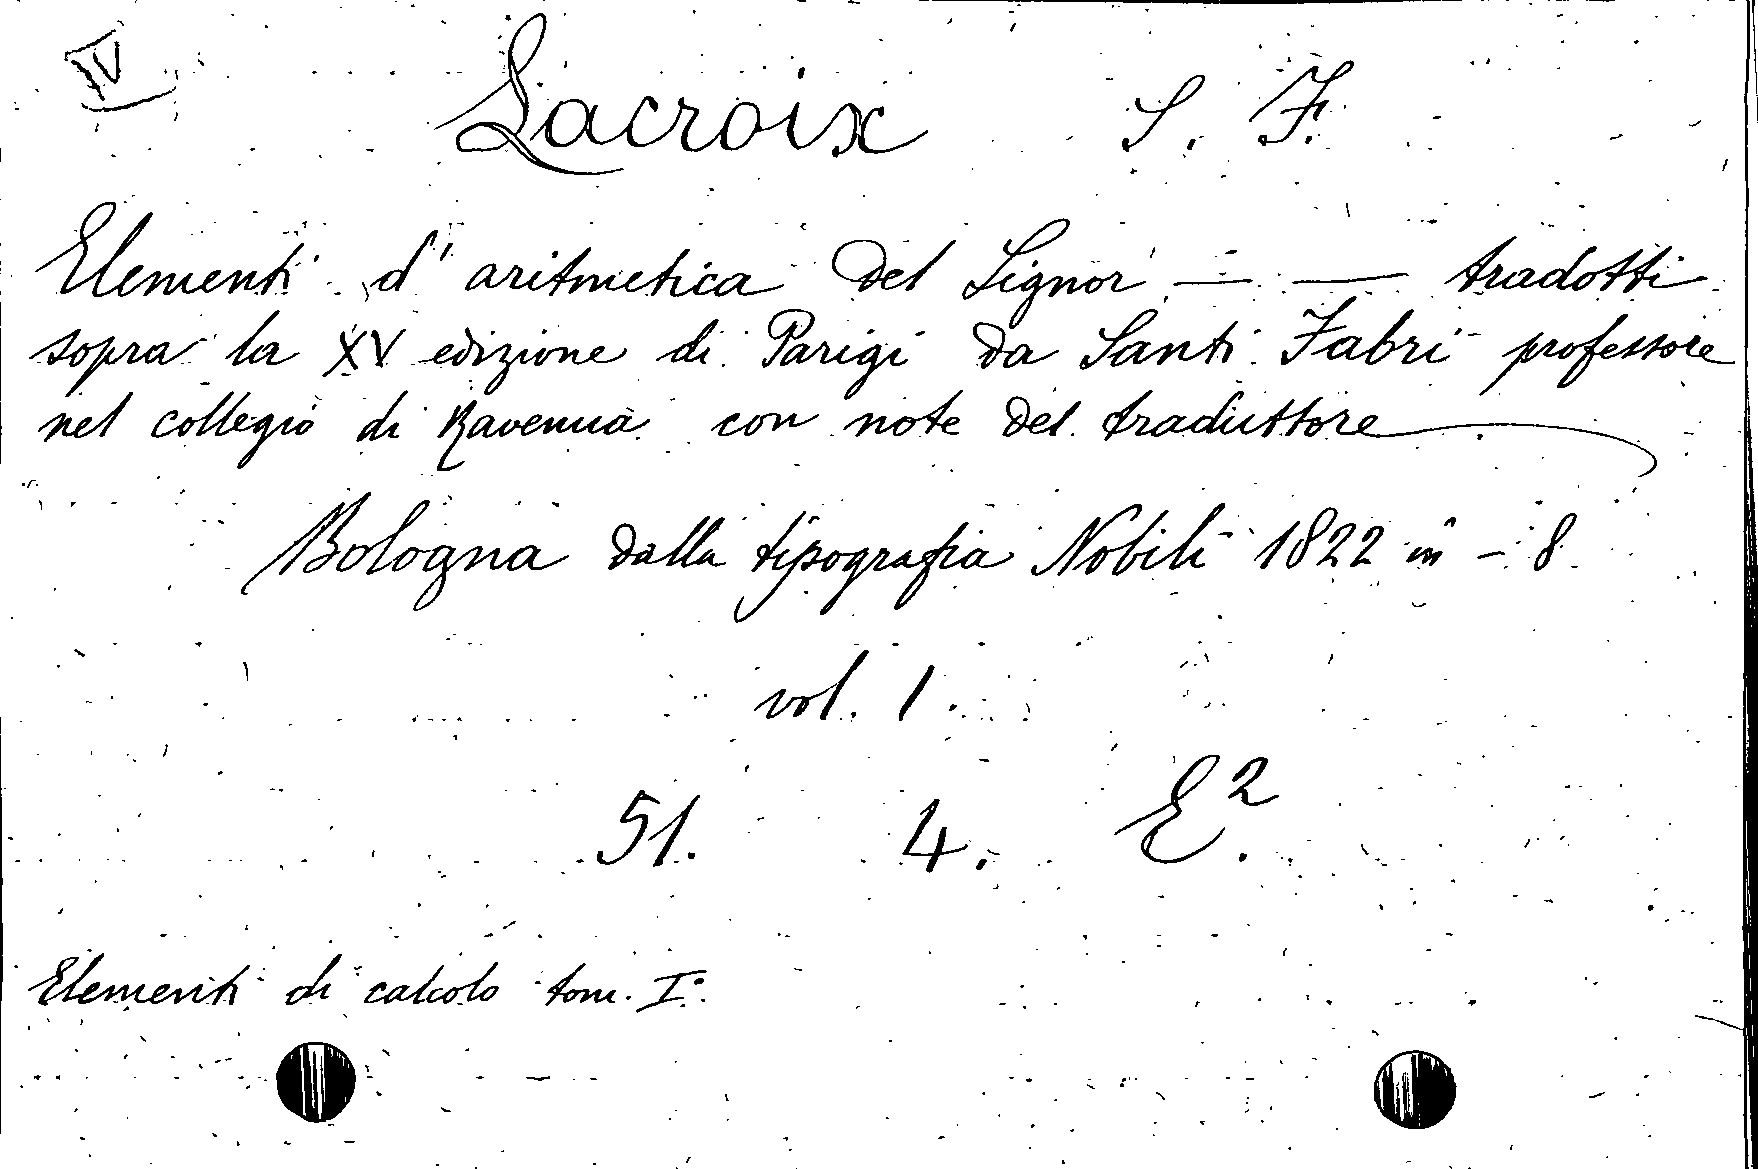 IV
Lacroix S. F.
Elementi d'aritmetica del Signor — — tradotti
sopra la XV edizione di Parigi da Santi Fabri professore
nel collegio di Ravenna con note del traduttore
Bologna dalla tipografia Nobili 1822 in - 8
vol. 1.
51. 4. E².
Elementi di calcolo tom. I°.